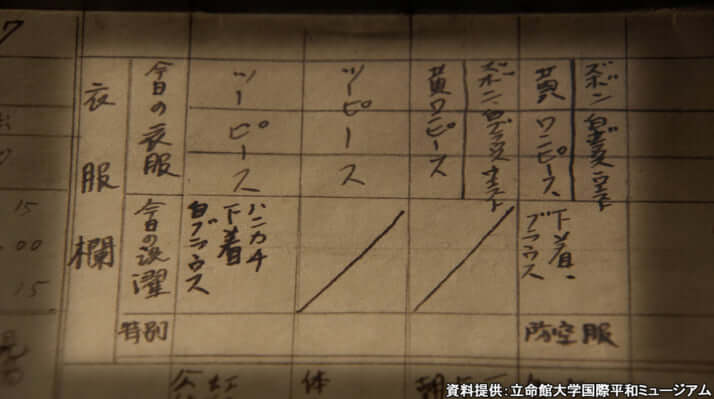 15
00
15
衣服欄
今日の衣服
ツーピース
ツーピース
黄ワンピース
ズボン、白ブラウス
黄ワンピース、
ズボン
今日の洗濯
ハンカチ
下着
白ブラウス
下着、
ブラウス
特別
防空服
体
資料提供：立命館大学国際平和ミュージアム